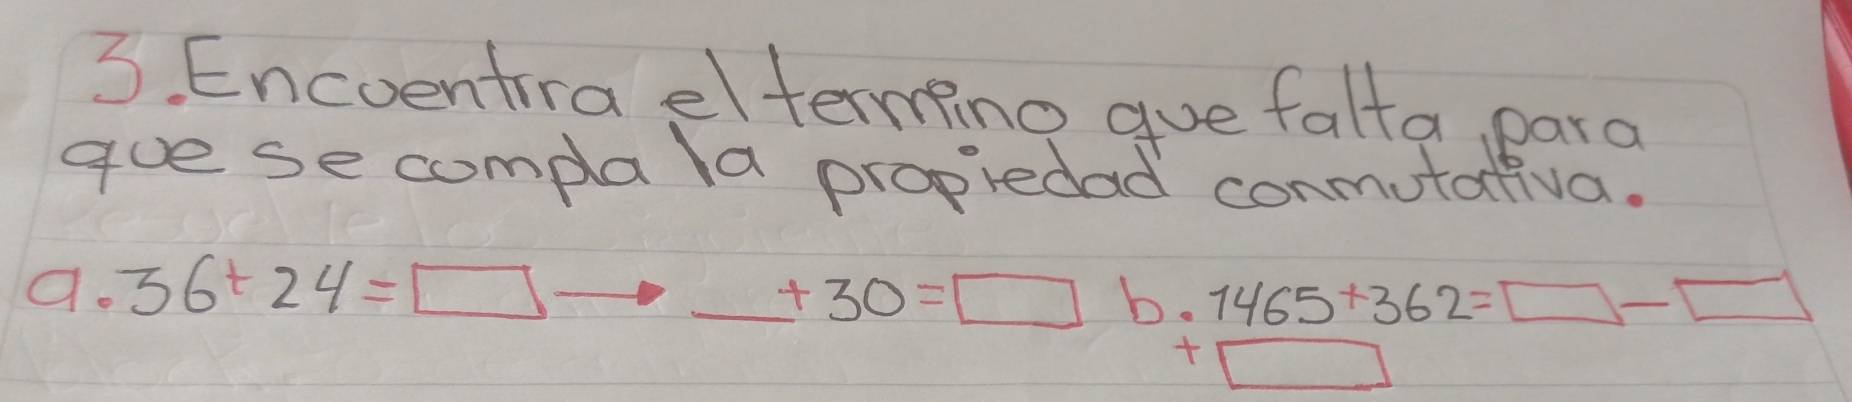 3. Encuentra el termino que falta para
que se compla la propiedad conmutativa.
a. 36+24=□→__+30=□ b. 1465+362=□-□
+□